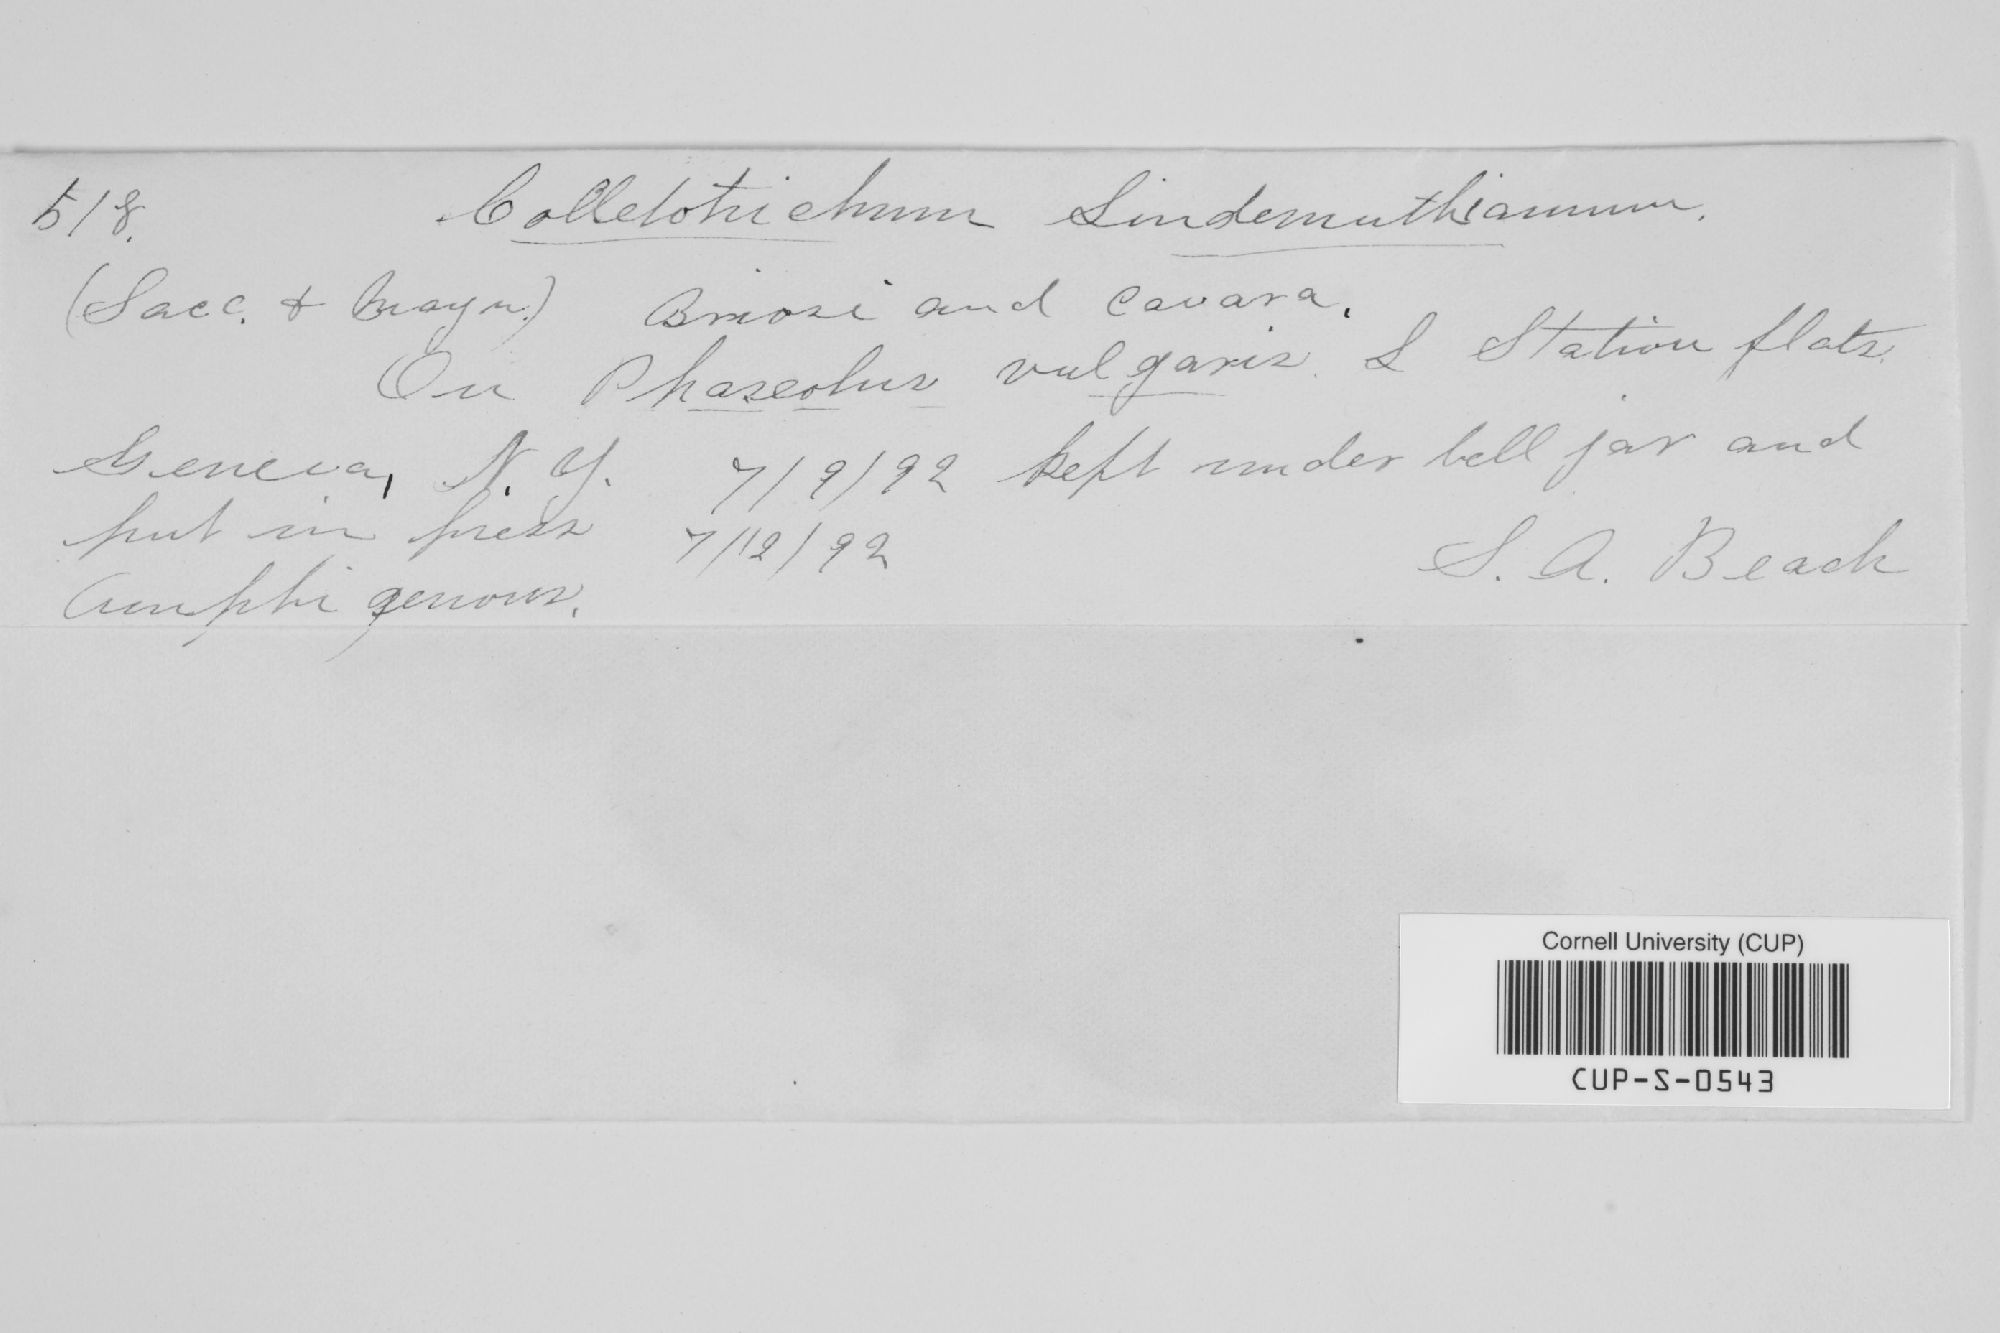 518. Colletotrichum Lindemuthianum.
(Sacc. & Magn.) Briosi and Cavara.
On Phaseolus vulgaris. L Station flats.
Geneva, N.Y. 7/9/92 kept under bell jar and
put in press 7/12/92 S. A. Beach
Amphigenous.
Cornell University (CUP)
CUP-S-0543